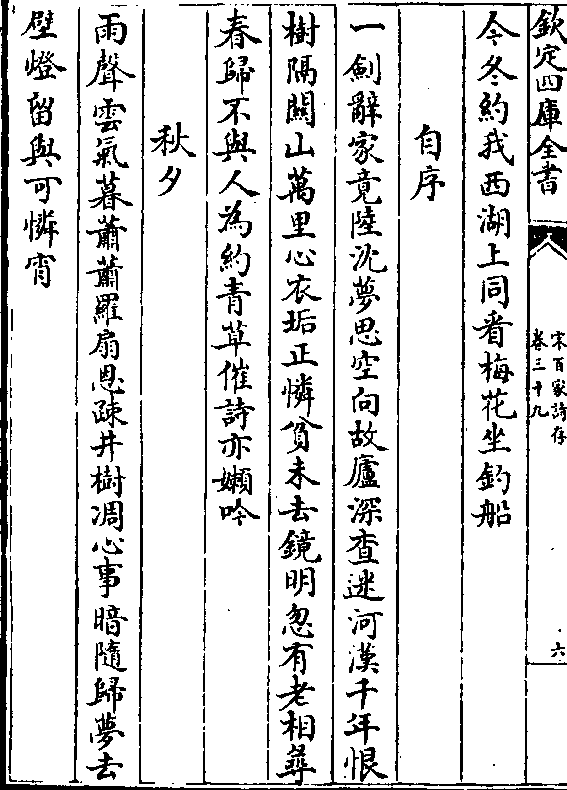 欽定四庫全書
宋百家詩存
卷三十九
六
今冬約我西湖上同看梅花坐釣船
自序
一劍辭家竟陸沈夢思空向故廬深查迷河漢千年恨
樹隔關山萬里心衣垢正憐貧未去鏡明忽有老相尋
春歸不與人為約青草催詩亦嬾吟
秋夕
雨聲雲氣暮蕭蕭羅扇恩疎井樹凋心事暗隨歸夢去
壁燈留與可憐宵